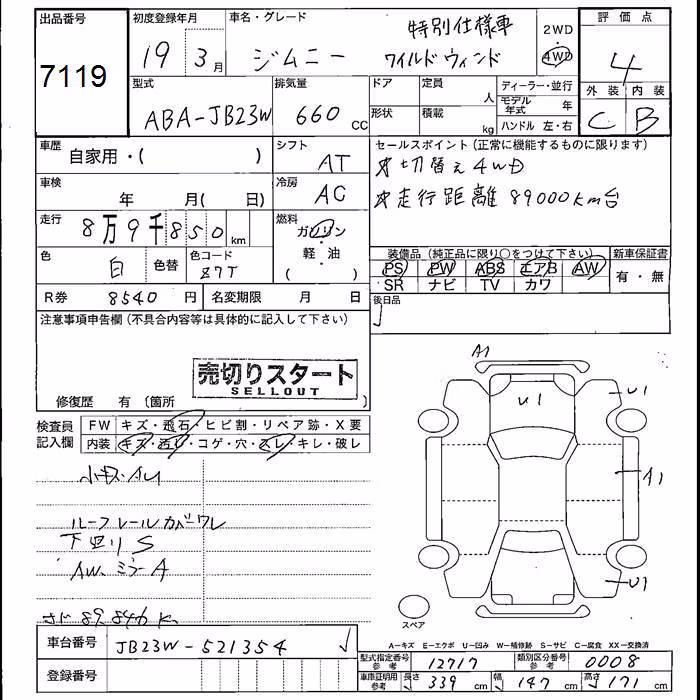 出品番号 7119
初度登録年月 19年 3月
車名・グレード ジムニー 特別仕様車 ワイルドウィンド
2WD
4WD
評価点 4
外装 C 内装 B
型式 ABA-JB23W
排気量 660 CC
ドア
形状
定員 人
積載 kg
ディーラー・並行
モデル年式 年
ハンドル 左・右
車歴 自家用・( )
シフト AT
セールスポイント(正常に機能するものに限ります)
切替え4WD
走行距離89000km台
車検 年 月( 日)
冷房 AC
走行 8万9千850km
燃料 ガソリン・軽・油 ( )
色 白 色替 色コード Z7T
装備品(純正品に限り○をつけて下さい)
PS PW ABS エアB AW
SR ナビ TV カワ
新車保証書
有・無
R券 8540円
名変期限 月 日
後日品
注意事項申告欄(不具合内容等は具体的に記入して下さい)
売切りスタート
SELLOUT
修復歴 有(箇所 )
検査員記入欄
FW キズ・飛石・ヒビ割・リペア跡・X要
内装 キズ・汚れ・コゲ・穴・スレ・キレ・破レ
小キズ・AU
ルーフレールカバーワレ
下回りS
AW、ミラーA
メーター 89,846 K
A1
U1
U1
A1
U1
スペア
A-キズ E-エクボ U-凹み W-補修跡 S-サビ C-腐食 XX-交換済
車台番号 JB23W-521354
型式指定番号参考 12717
類別区分番号参考 0008
登録番号
車庫証明用参考 長さ 339 cm 幅 147 cm 高さ 171 cm